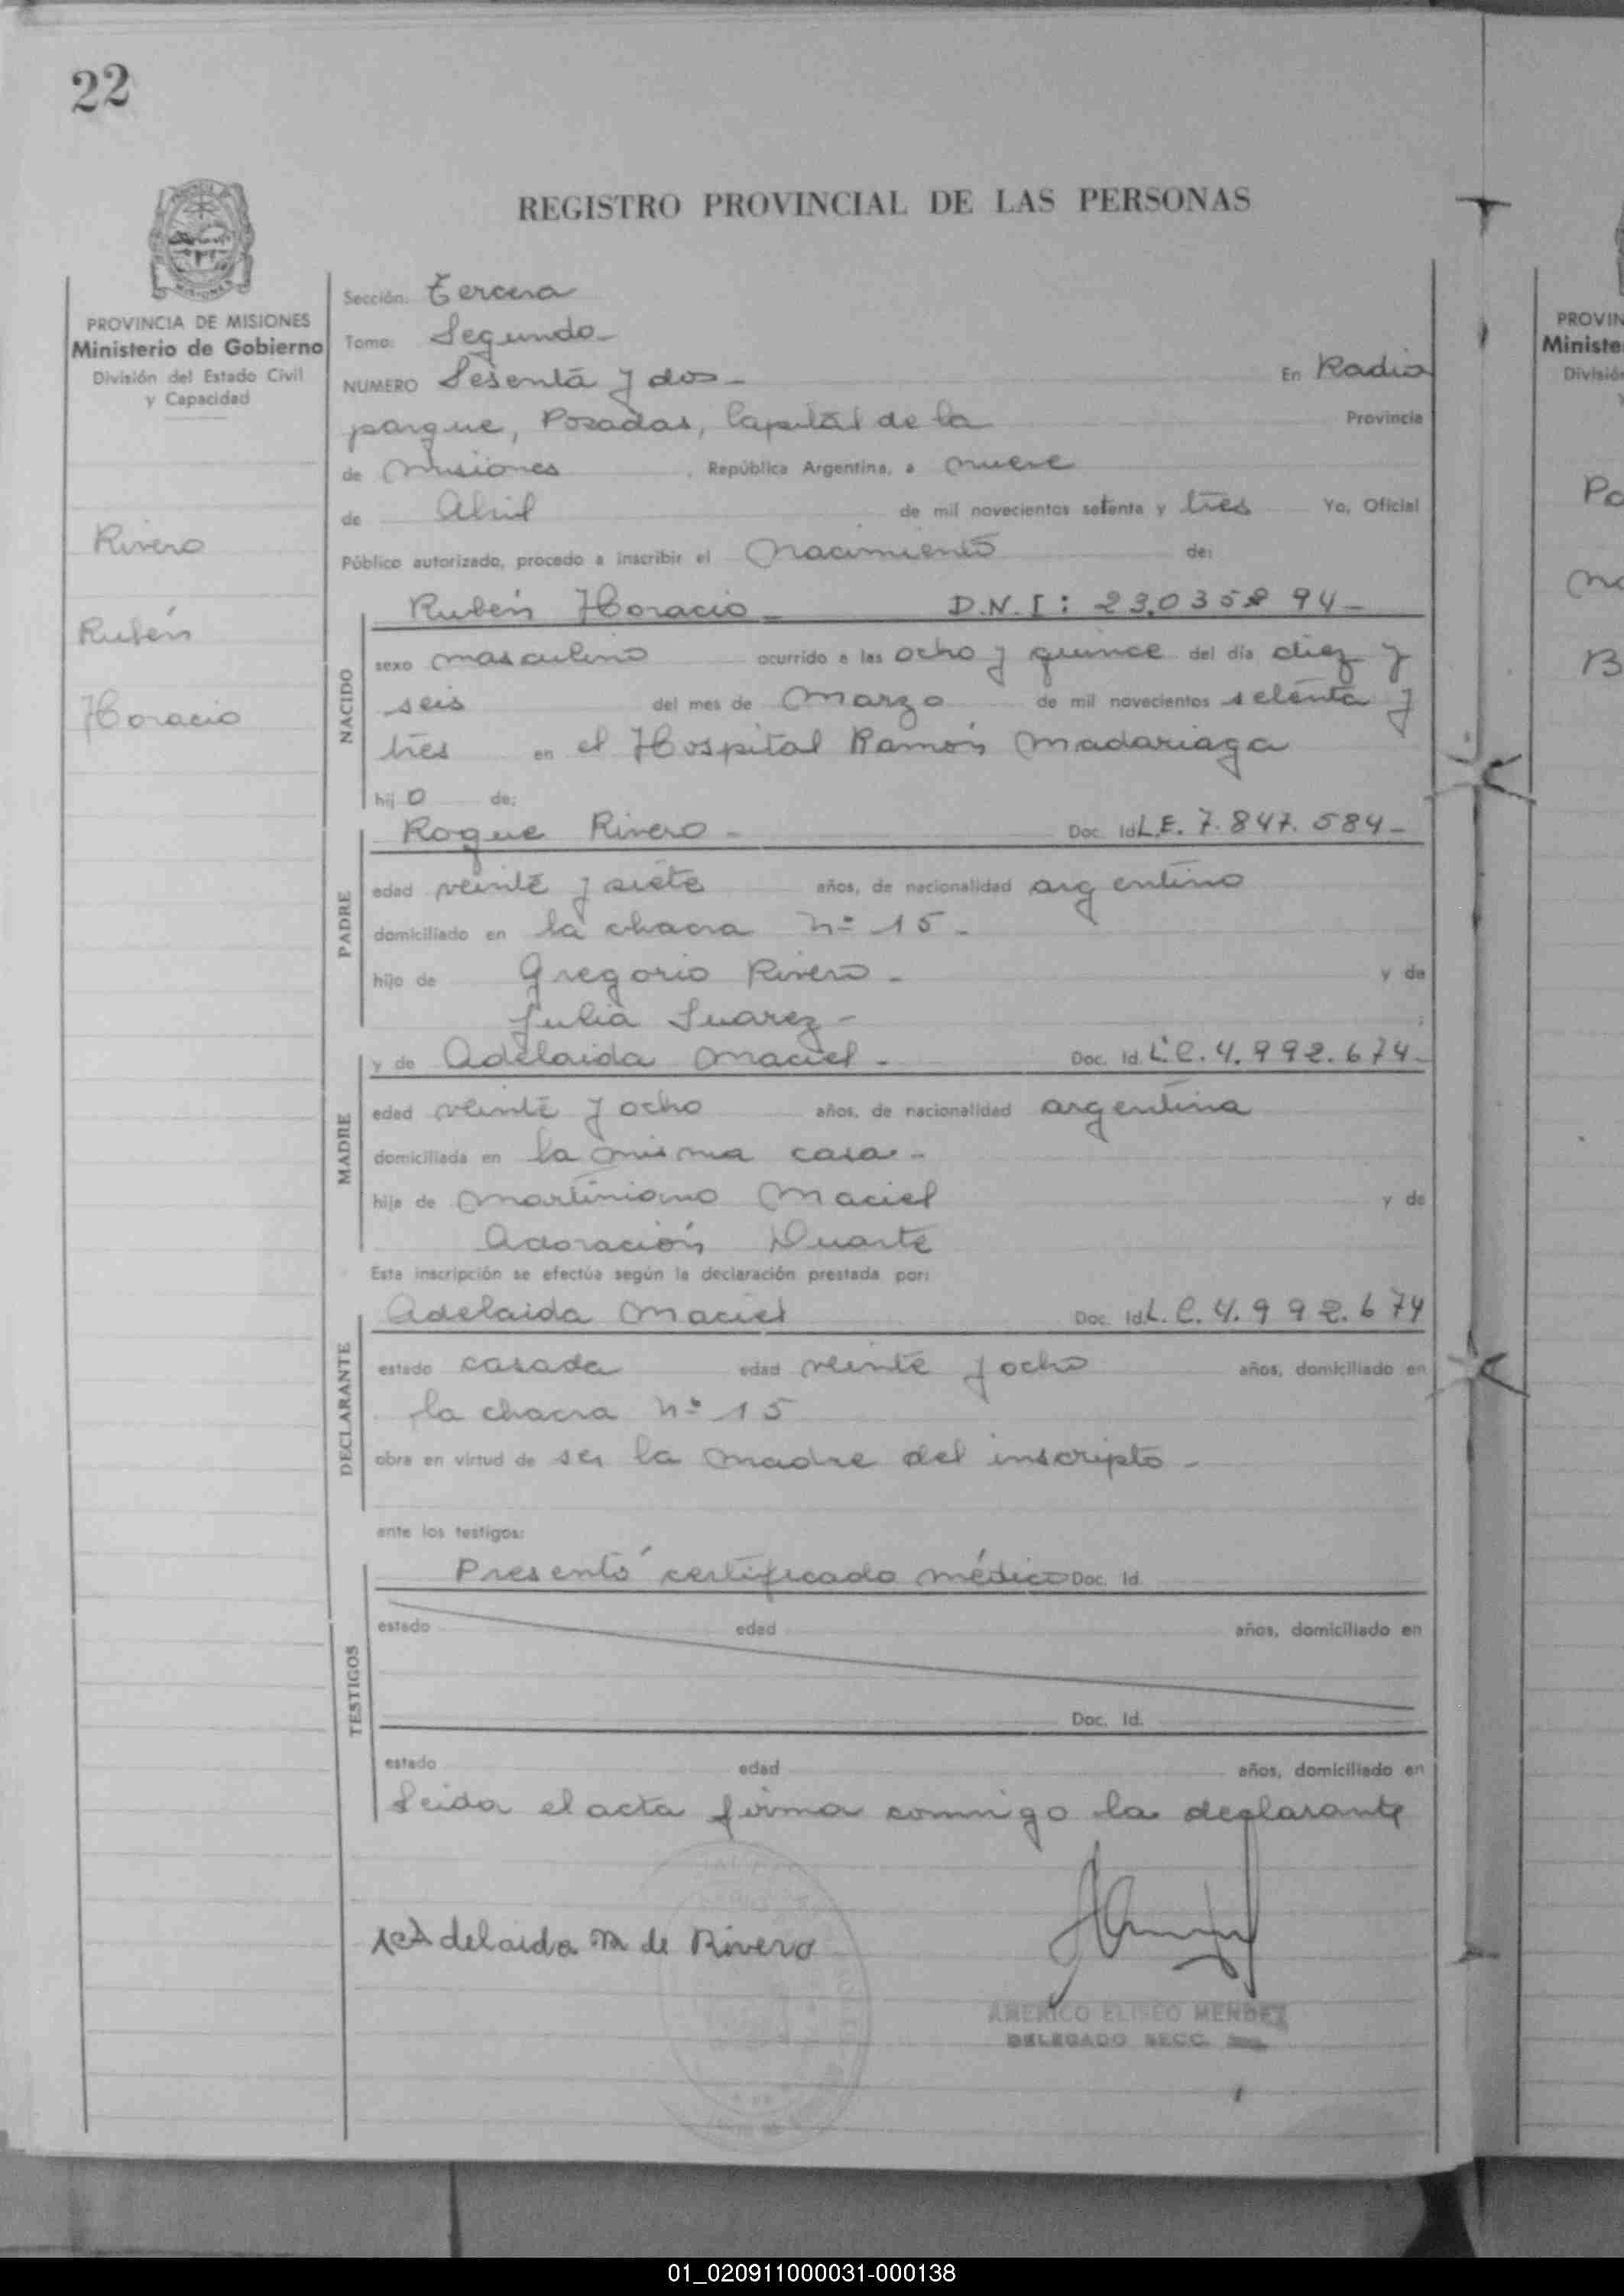 22
REGISTRO PROVINCIAL DE LAS PERSONAS
PROVINCIA DE MISIONES
Ministerio de Gobierno
División del Estado Civil
y Capacidad
Rivero
Rubén
Horacio
Sección: Tercera
Tomo: Segundo-
NUMERO Sesenta y dos- En Radio
parque, Posadas, Capital de la Provincia
de Misiones, República Argentina, a nueve
de Abril de mil novecientos setenta y tres Yo, Oficial
Público autorizado, procedo a inscribir el Nacimiento de:
NACIDO
Rubén Horacio- D.N.I: 23.035894-
sexo masculino ocurrido a las ocho y quince del día diez y
seis del mes de Marzo de mil novecientos setenta y
tres en el Hospital Ramón Madariaga
hijo de:
PADRE
Roque Rivero- Doc. Id. L.E. 7.847.584-
edad veinte y siete años, de nacionalidad argentino
domiciliado en la chacra nº 15-
hijo de Gregorio Rivero- y de
Julia Suarez-
MADRE
y de Adelaida Maciel- Doc. Id. L.C. 4.992.674-
edad veinte y ocho años, de nacionalidad argentina
domiciliada en la misma casa-
hija de Martiniano Maciel y de
Adoración Duarte
Esta inscripción se efectúa según la declaración prestada por:
DECLARANTE
Adelaida Maciel Doc. Id. L.C. 4.992.674
estado casada edad veinte y ocho años, domiciliado en
la chacra nº 15
obra en virtud de ser la madre del inscripto-
ante los testigos:
TESTIGOS
Presentó certificado médico Doc. Id.
estado edad años, domiciliado en
Doc. Id.
estado edad años, domiciliado en
Leida el acta firma conmigo la declarante
Adelaida M de Rivero
AMERICO ELISEO MENDEZ
DELEGADO SECC.
PROVIN
Ministe
División
Po
B
01_020911000031-000138